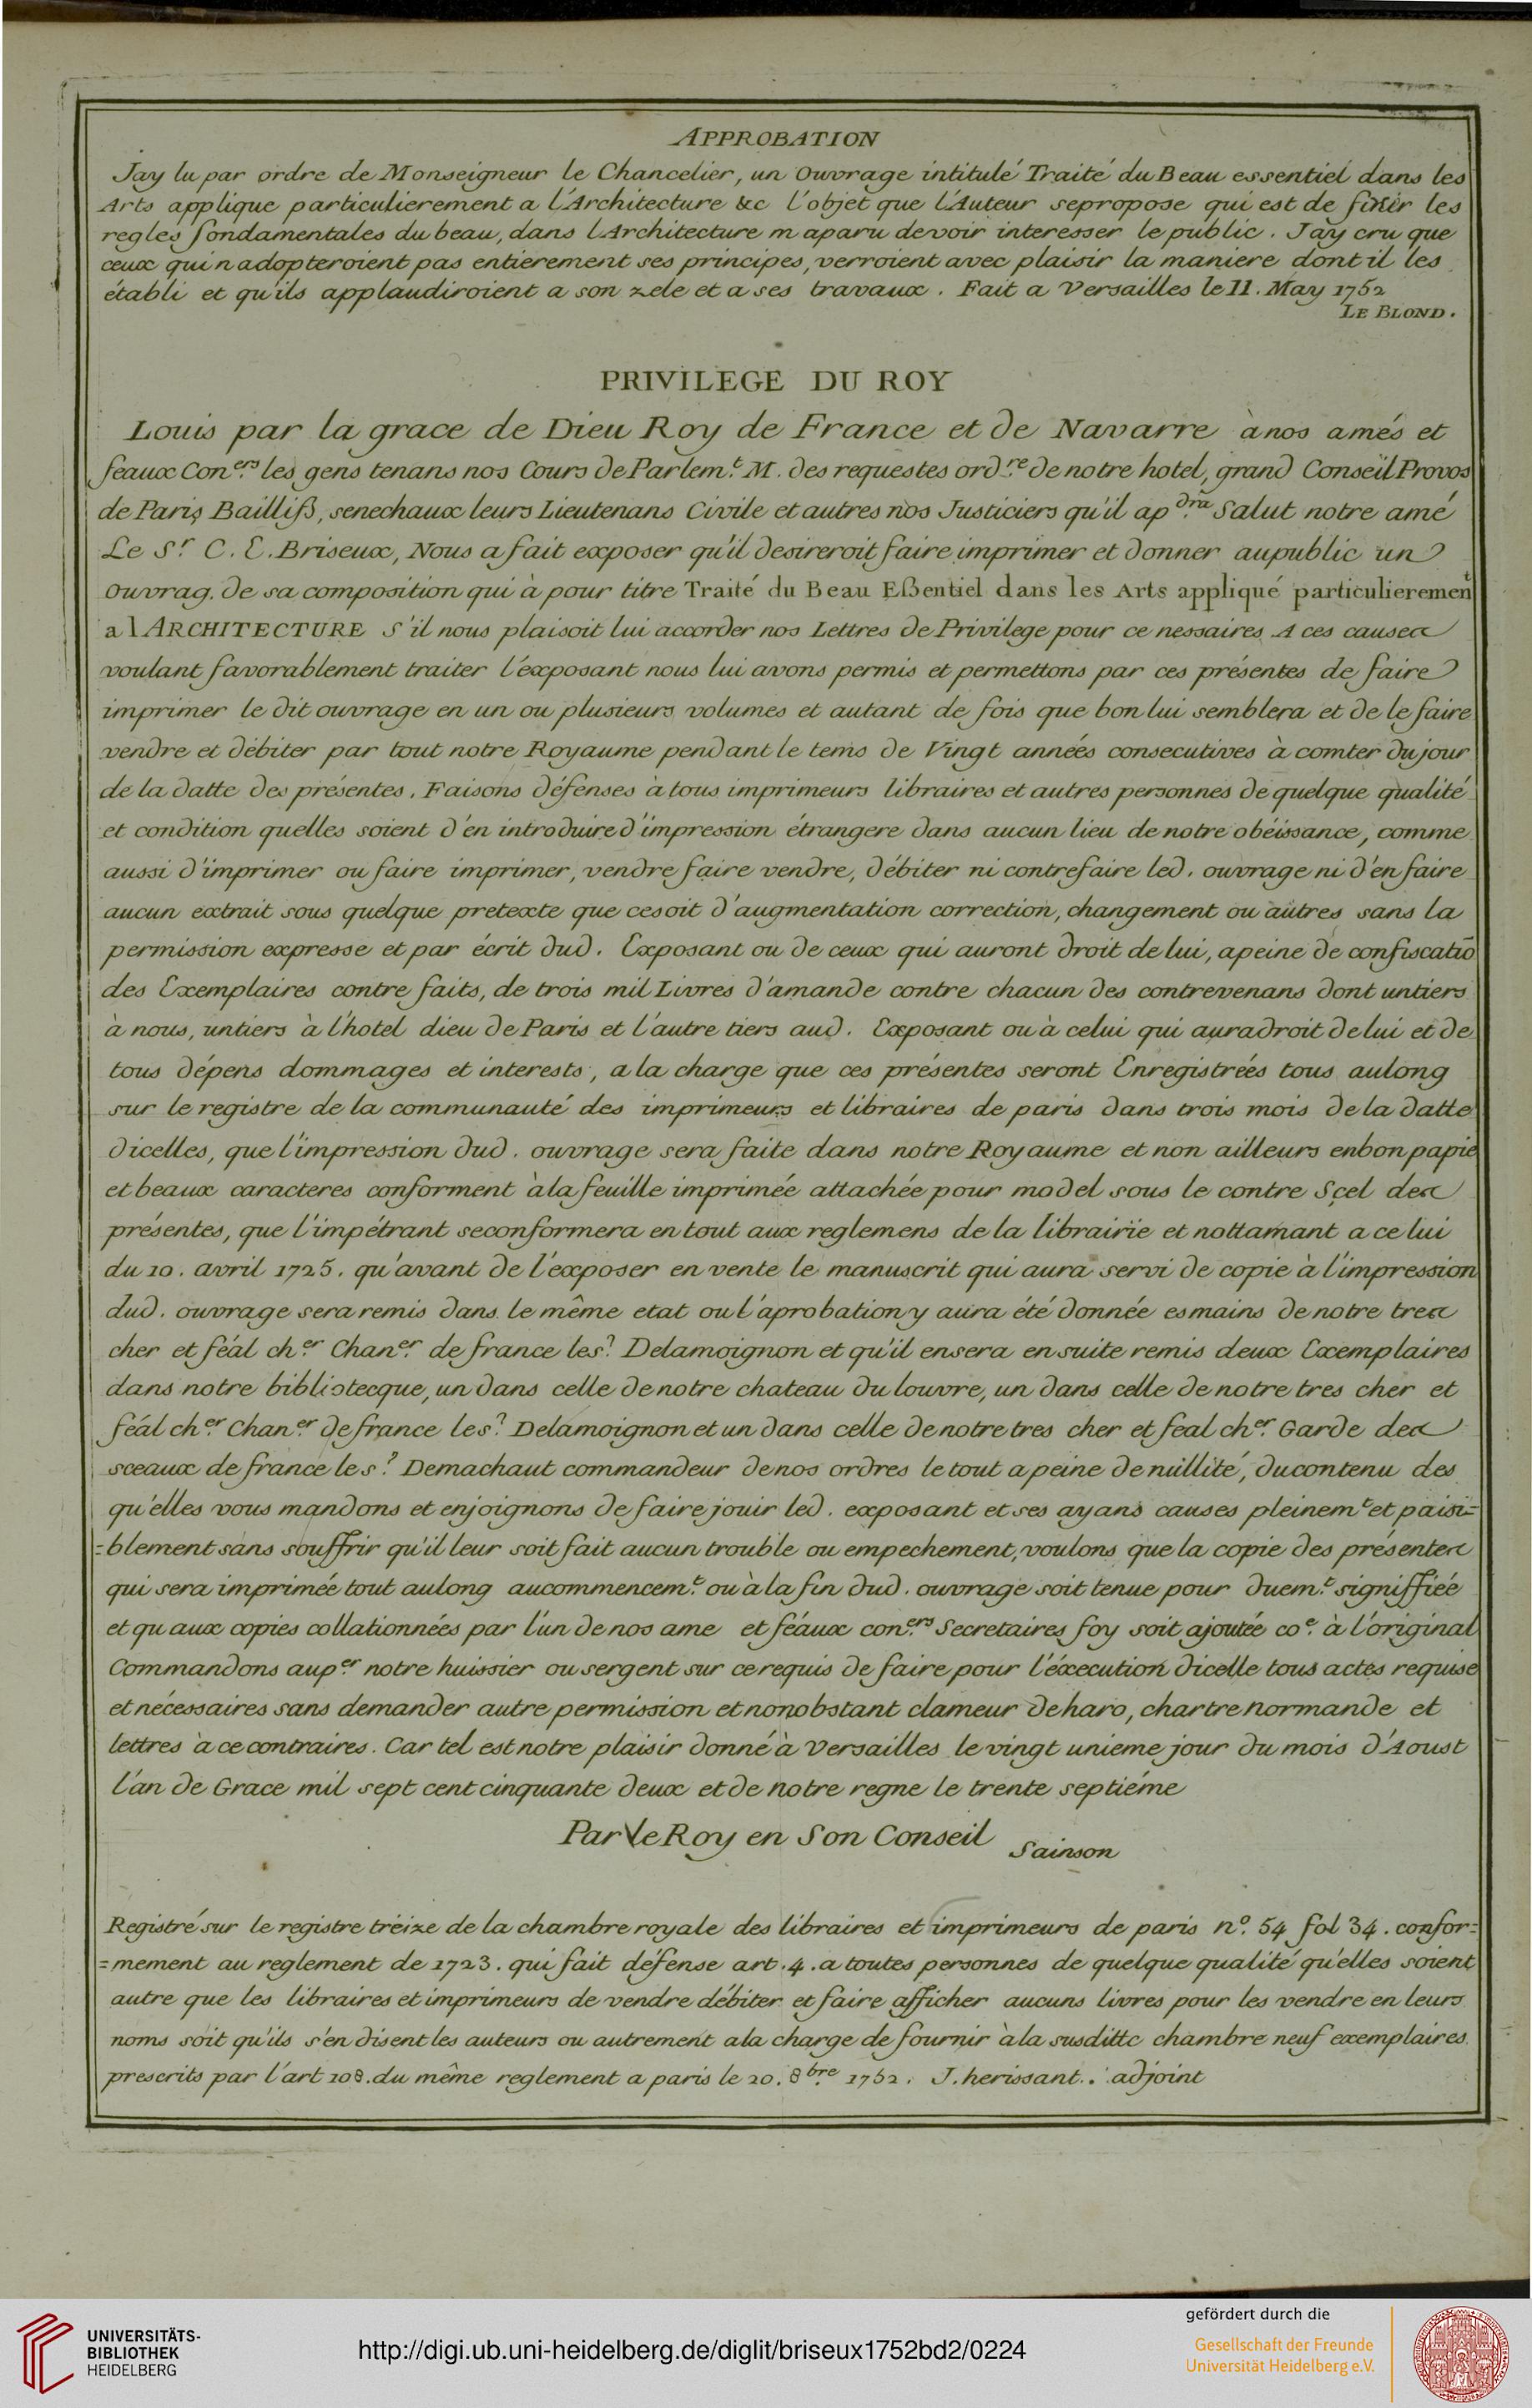 APPROBATION
Jay lu par ordre de Monseigneur le Chancelier, un Ouvrage intitulé Traité du Beau essentiel dans les
Arts applique particulierement a l'Architecture &c l'objet que l'Auteur sepropose qui est de fixer les
regles fondamentales du beau, dans l'Architecture m aparu devoir interesser le public. Jay cru que
ceux qui n adopteroient pas entierement ses principes, verroient avec plaisir la maniere dont il les
établi et qu'ils applaudiroient a son zele et a ses travaux. Fait a Versailles le 11. May 1752
LE BLOND.
PRIVILEGE DU ROY
Louis par la grace de Dieu Roy de France et de Navarre à nos amés et
feaux Con.ers les gens tenans nos Cours de Parlem.t M. des requestes ord.re de notre hotel, grand Conseil Provos
de Paris Bailliß, senechaux leurs Lieutenans Civile et autres nos Justiciers qu'il ap.dra Salut notre amé
Le S.r C. E. Briseux, Nous a fait exposer qu'il desireroit faire imprimer et donner aupublic un
ouvrag. de sa composition qui à pour titre Traité du Beau Eßentiel dans les Arts appliqué particulierement
a l ARCHITECTURE S'il nous plaisoit lui accorder nos Lettres de Privilege pour ce nessaires A ces causes
voulant favorablement traiter l'exposant nous lui avons permis et permettons par ces présentes de faire
imprimer le dit ouvrage en un ou plusieurs volumes et autant de fois que bon lui semblera et de le faire
vendre et débiter par tout notre Royaume pendant le tems de Vingt années consecutives à comter du jour
de la datte des présentes. Faisons défenses à tous imprimeurs libraires et autres personnes de quelque qualité
et condition quelles soient d'en introduire d'impression étrangere dans aucun lieu de notre obéissance, comme
aussi d'imprimer ou faire imprimer, vendre faire vendre, débiter ni contrefaire led. ouvrage ni d'en faire
aucun extrait sous quelque pretexte que cesoit d'augmentation correction, changement ou autres sans la
permission expresse et par écrit dud. Exposant ou de ceux qui auront droit de lui, apeine de confiscatiõ
des Exemplaires contre faits, de trois mil Livres d'amande contre chacun des contrevenans dont untiers
à nous, untiers à l'hotel dieu de Paris et l'autre tiers aud. Exposant ou à celui qui auradroit de lui et de
tous dépens dommages et interests, a la charge que ces présentes seront Enregistrées tous aulong
sur le registre de la communauté des imprimeurs et libraires de paris dans trois mois de la datte
dicelles, que l'impression dud. ouvrage sera faite dans notre Royaume et non ailleurs enbon papie
et beaux caracteres conforment à la feuille imprimée attachée pour model sous le contre Scel des
présentes, que l'impétrant seconformera en tout aux reglemens de la librairie et nottamant a ce lui
du 10. avril 1725. qu'avant de l'exposer en vente le manuscrit qui aura servi de copie à l'impression
dud. ouvrage sera remis dans le même etat ou l'aprobation y aura été donnée esmains de notre tres
cher et féal ch.er Chan.er de france le s.r Delamoignon et qu'il ensera ensuite remis deux Exemplaires
dans notre bibliotecque, un dans celle de notre chateau du louvre, un dans celle de notre tres cher et
féal ch.er Chan.er de france le s.r Delamoignon et un dans celle de notre tres cher et feal ch.er Garde des
sceaux de france le s.r Demachaut commandeur de nos ordres le tout a peine de nullité, ducontenu des
qu'elles vous mandons et enjoignons de faire jouir led. exposant et ses ayans causes pleinem.t et paisi=
=blement sans souffrir qu'il leur soit fait aucun trouble ou empechement, voulons que la copie des présentes
qui sera imprimée tout aulong aucommencem.t ou à la fin dud. ouvrage soit tenue pour duem.t signiffiée
et qu aux copies collationnées par l'un de nos ame et féaux con.ers Secretaires foy soit ajoutée co.e à l'original
Commandons aup.er notre huissier ou sergent sur ce requis de faire pour l'éxecution dicelle tous actes requise
et nécessaires sans demander autre permission et nonobstant clameur de haro, chartre normande et
lettres à ce contraires. Car tel est notre plaisir donné à Versailles le vingt unieme jour du mois d'Aoust
l'an de Grace mil sept cent cinquante deux et de notre regne le trente septiéme
Par le Roy en Son Conseil Sainson
Registré sur le registre treize de la chambre royale des libraires et imprimeurs de paris n.o 54 fol 34. confor=
=mement au reglement de 1723. qui fait défense art. 4. a toutes personnes de quelque qualité qu'elles soient
autre que les libraires et imprimeurs de vendre débiter et faire afficher aucuns livres pour les vendre en leurs
noms soit qu'ils s'en disent les auteurs ou autrement ala charge de fournir à la susditte chambre neuf exemplaires
prescrits par l'art 108. du même reglement a paris le 20. 8.bre 1752. J. herissant. adjoint
UNIVERSITÄTS-
BIBLIOTHEK
HEIDELBERG
http://digi.ub.uni-heidelberg.de/diglit/briseux1752bd2/0224
gefördert durch die
Gesellschaft der Freunde
Universität Heidelberg e.V.